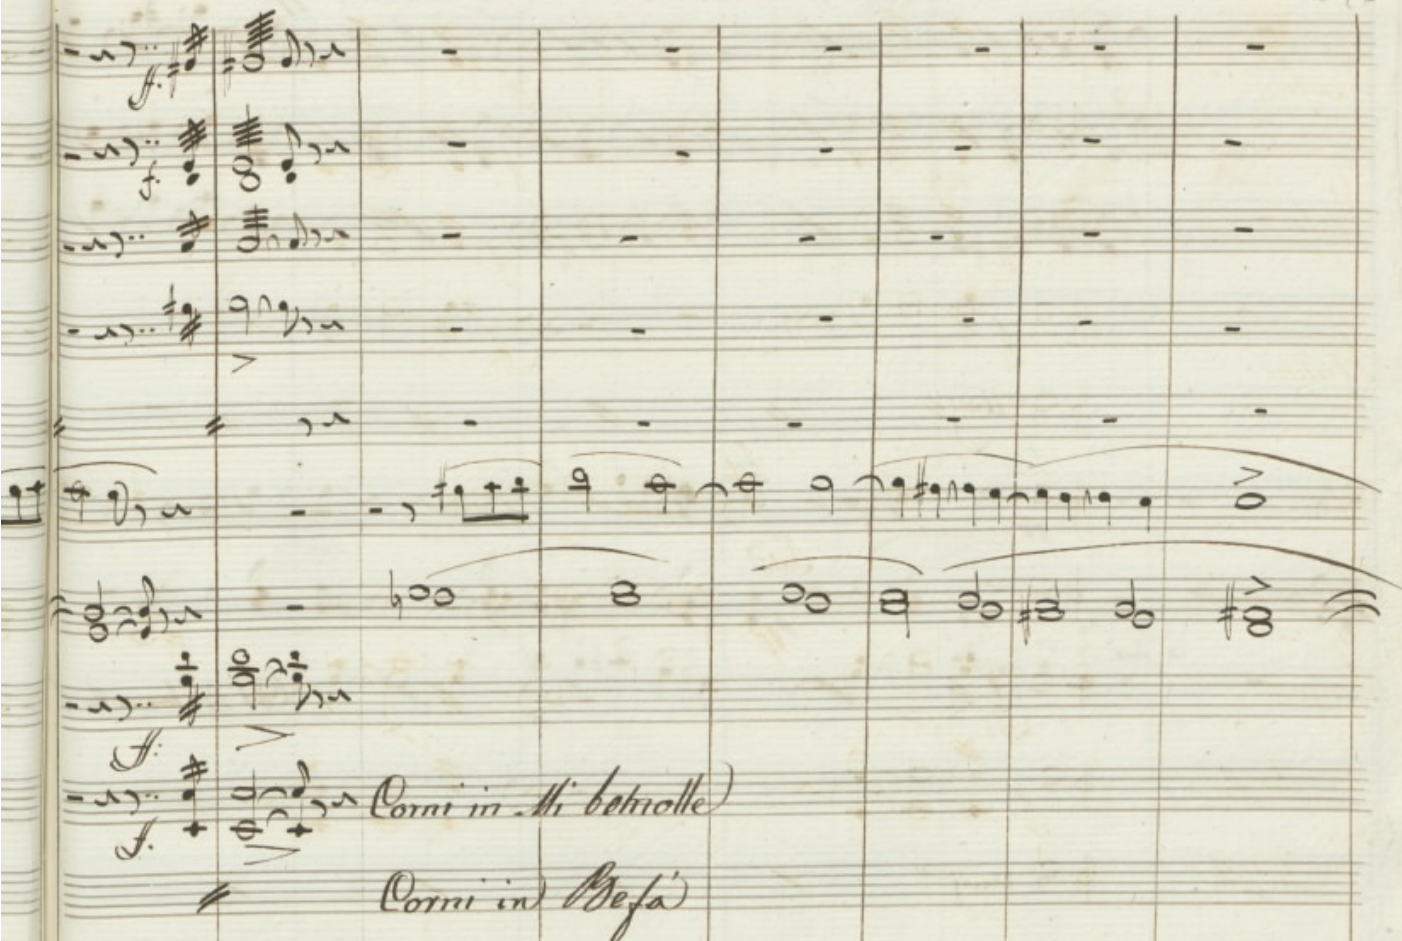 ff.
f.
ff.
f.
Corni in Mi bemolle
Corni in Befá